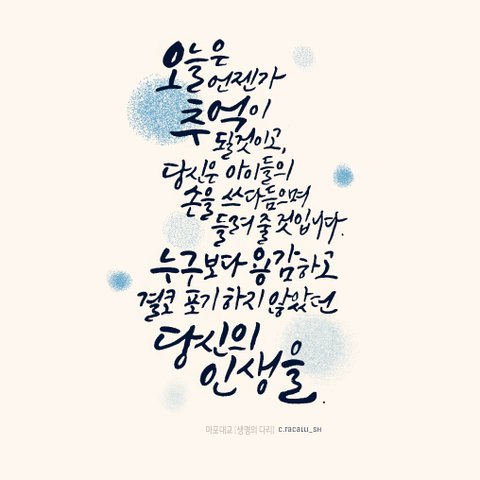 오늘은
언젠가
추억이
될것이고,
당신은 아이들의
손을 쓰다듬으며
들려 줄 것입니다.
누구보다 용감하고
결코 포기하지 않았던
당신의
인생을.
마포대교 [생명의 다리] c.racalli_SH